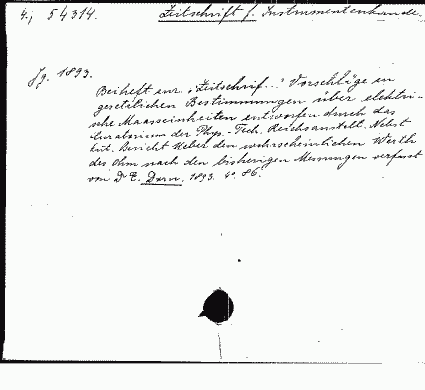 4.; 54314. Zeitschrift f. Instrumentenkunde.
Jg. 1893.
Beiheft zur „Zeitschrif...“ Vorschläge zu
gesetzlichen Bestimmungen über elektri-
sche Maasseinheiten entworfen durch das
Curatorium der Phys.-Tech. Reichsanstalt. Nebst
krit. Bericht über den wahrscheinlichen Werth
des Ohm nach den bisherigen Messungen verfasst
von Dr E. Dorn. 1893. 4o. 86.